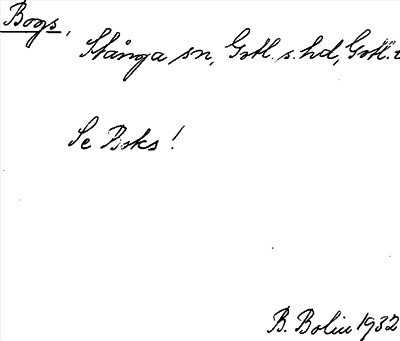 Bogs,
Stånga sn, Gotl. s. hd, Gotl.
Se Boks!
B. Bolin 1932